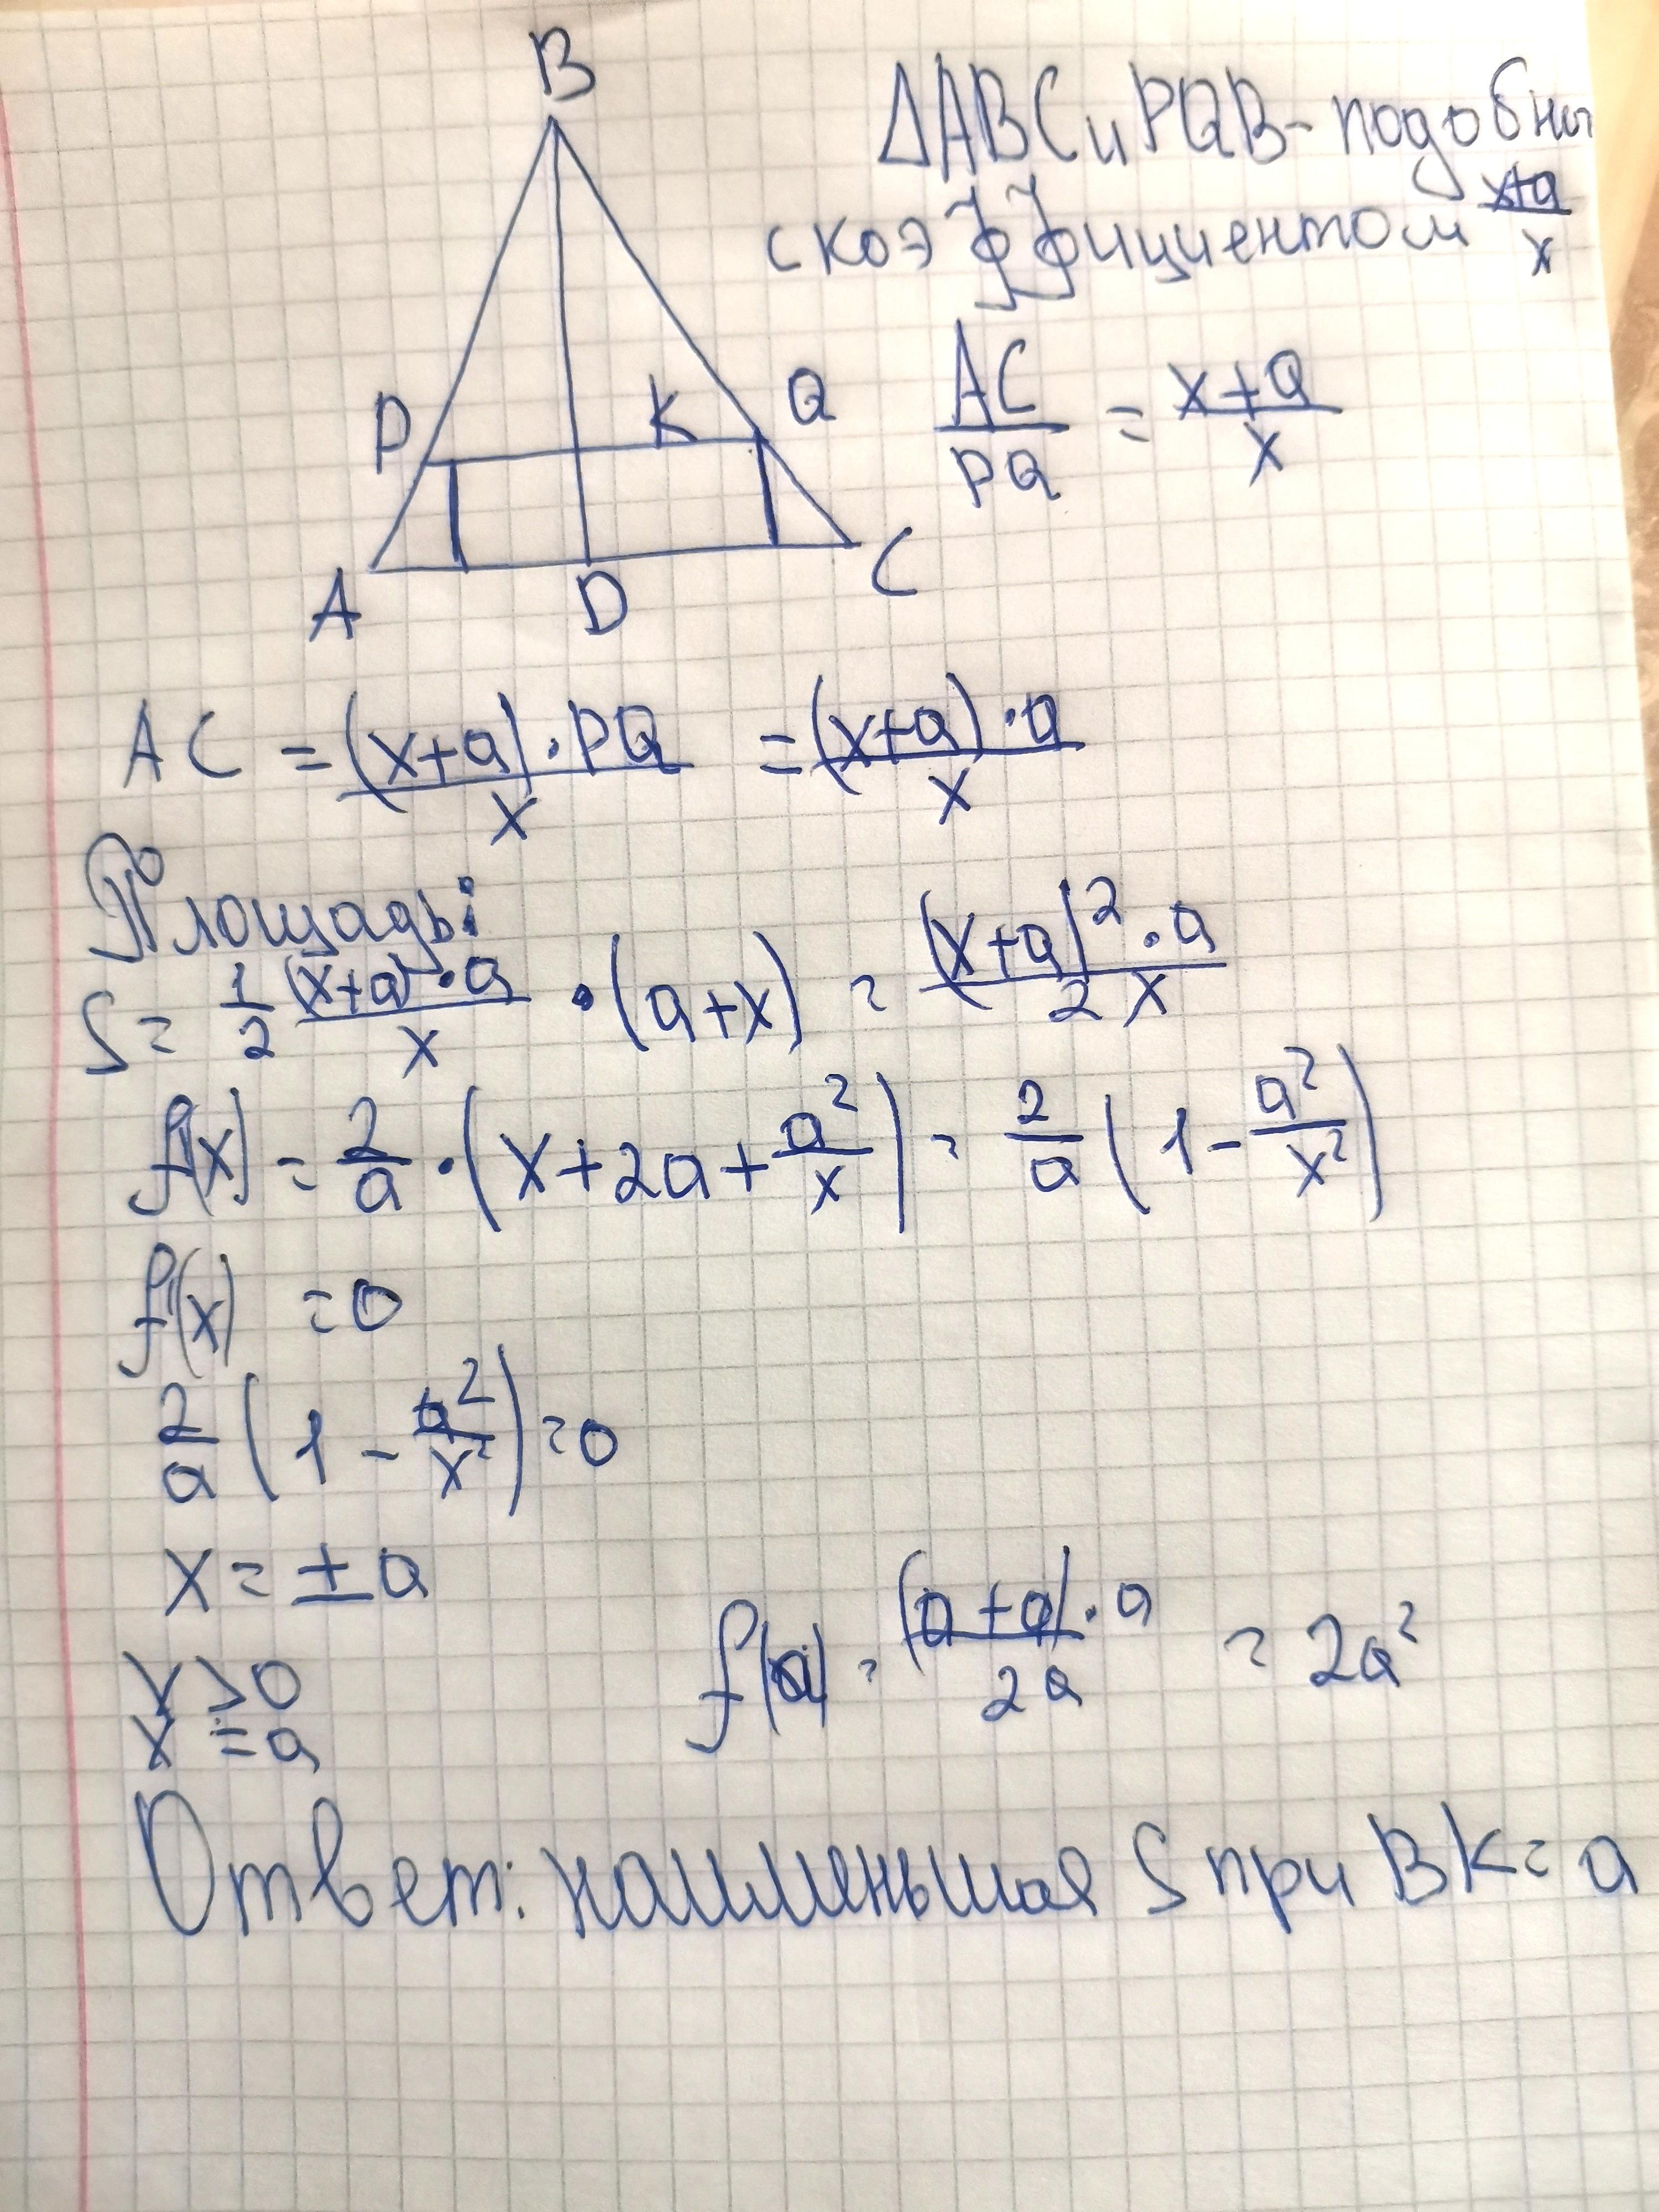 B
ΔABC и PQB - подобны
с коэффициентом (x+a)/x
P K Q
AC/PQ = (x+a)/x
A D C
AC = (x+a)·PQ/x = (x+a)·a/x
Площадь:
S = 1/2 (x+a)·a/x · (a+x) = (x+a)²·a/2x
f(x) = 2/a · (x+2a+a²/x) = 2/a (1 - a²/x²)
f'(x) = 0
2/a (1 - a²/x²) = 0
x = ±a
x > 0
x = a
f(a) = (a+a)·a/2a = 2a²
Ответ: наименьшая S при BK = a